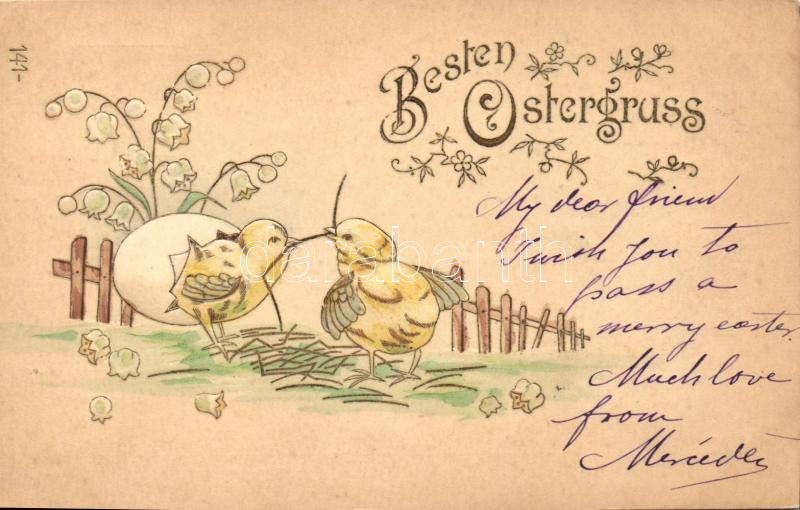 141-
Besten
Ostergruss
My dear friend
I wish you to
pass a
merry easter.
Much love
from
Mercédès
darabanth